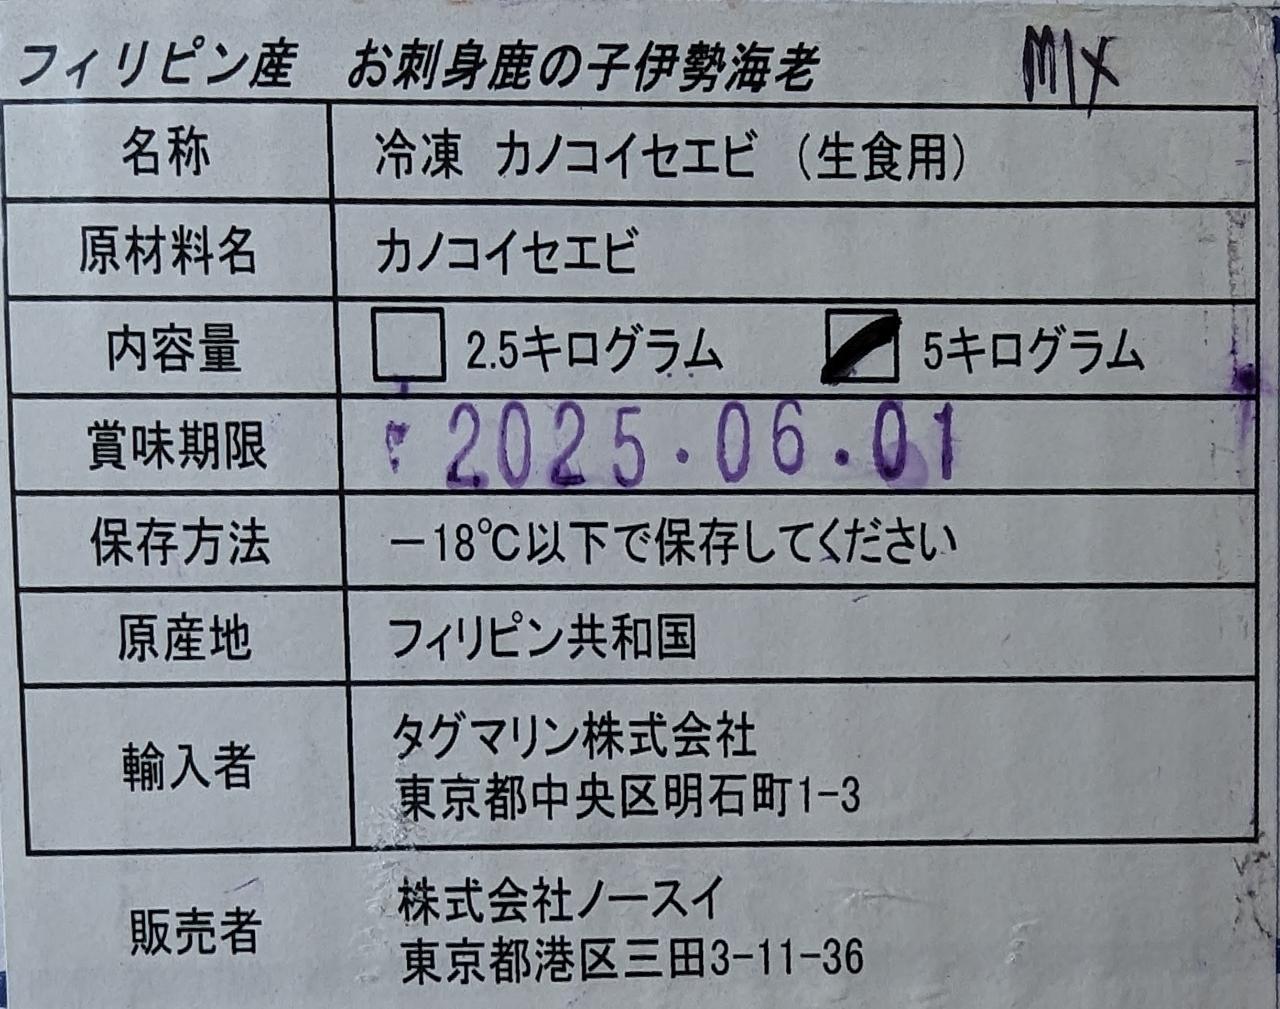 フィリピン産　お刺身鹿の子伊勢海老 MIX
名称 冷凍 カノコイセエビ（生食用）
原材料名 カノコイセエビ
内容量 2.5キログラム 5キログラム
賞味期限 2025.06.01
保存方法 －18℃以下で保存してください
原産地 フィリピン共和国
輸入者 タグマリン株式会社
東京都中央区明石町1-3
販売者 株式会社ノースイ
東京都港区三田3-11-36